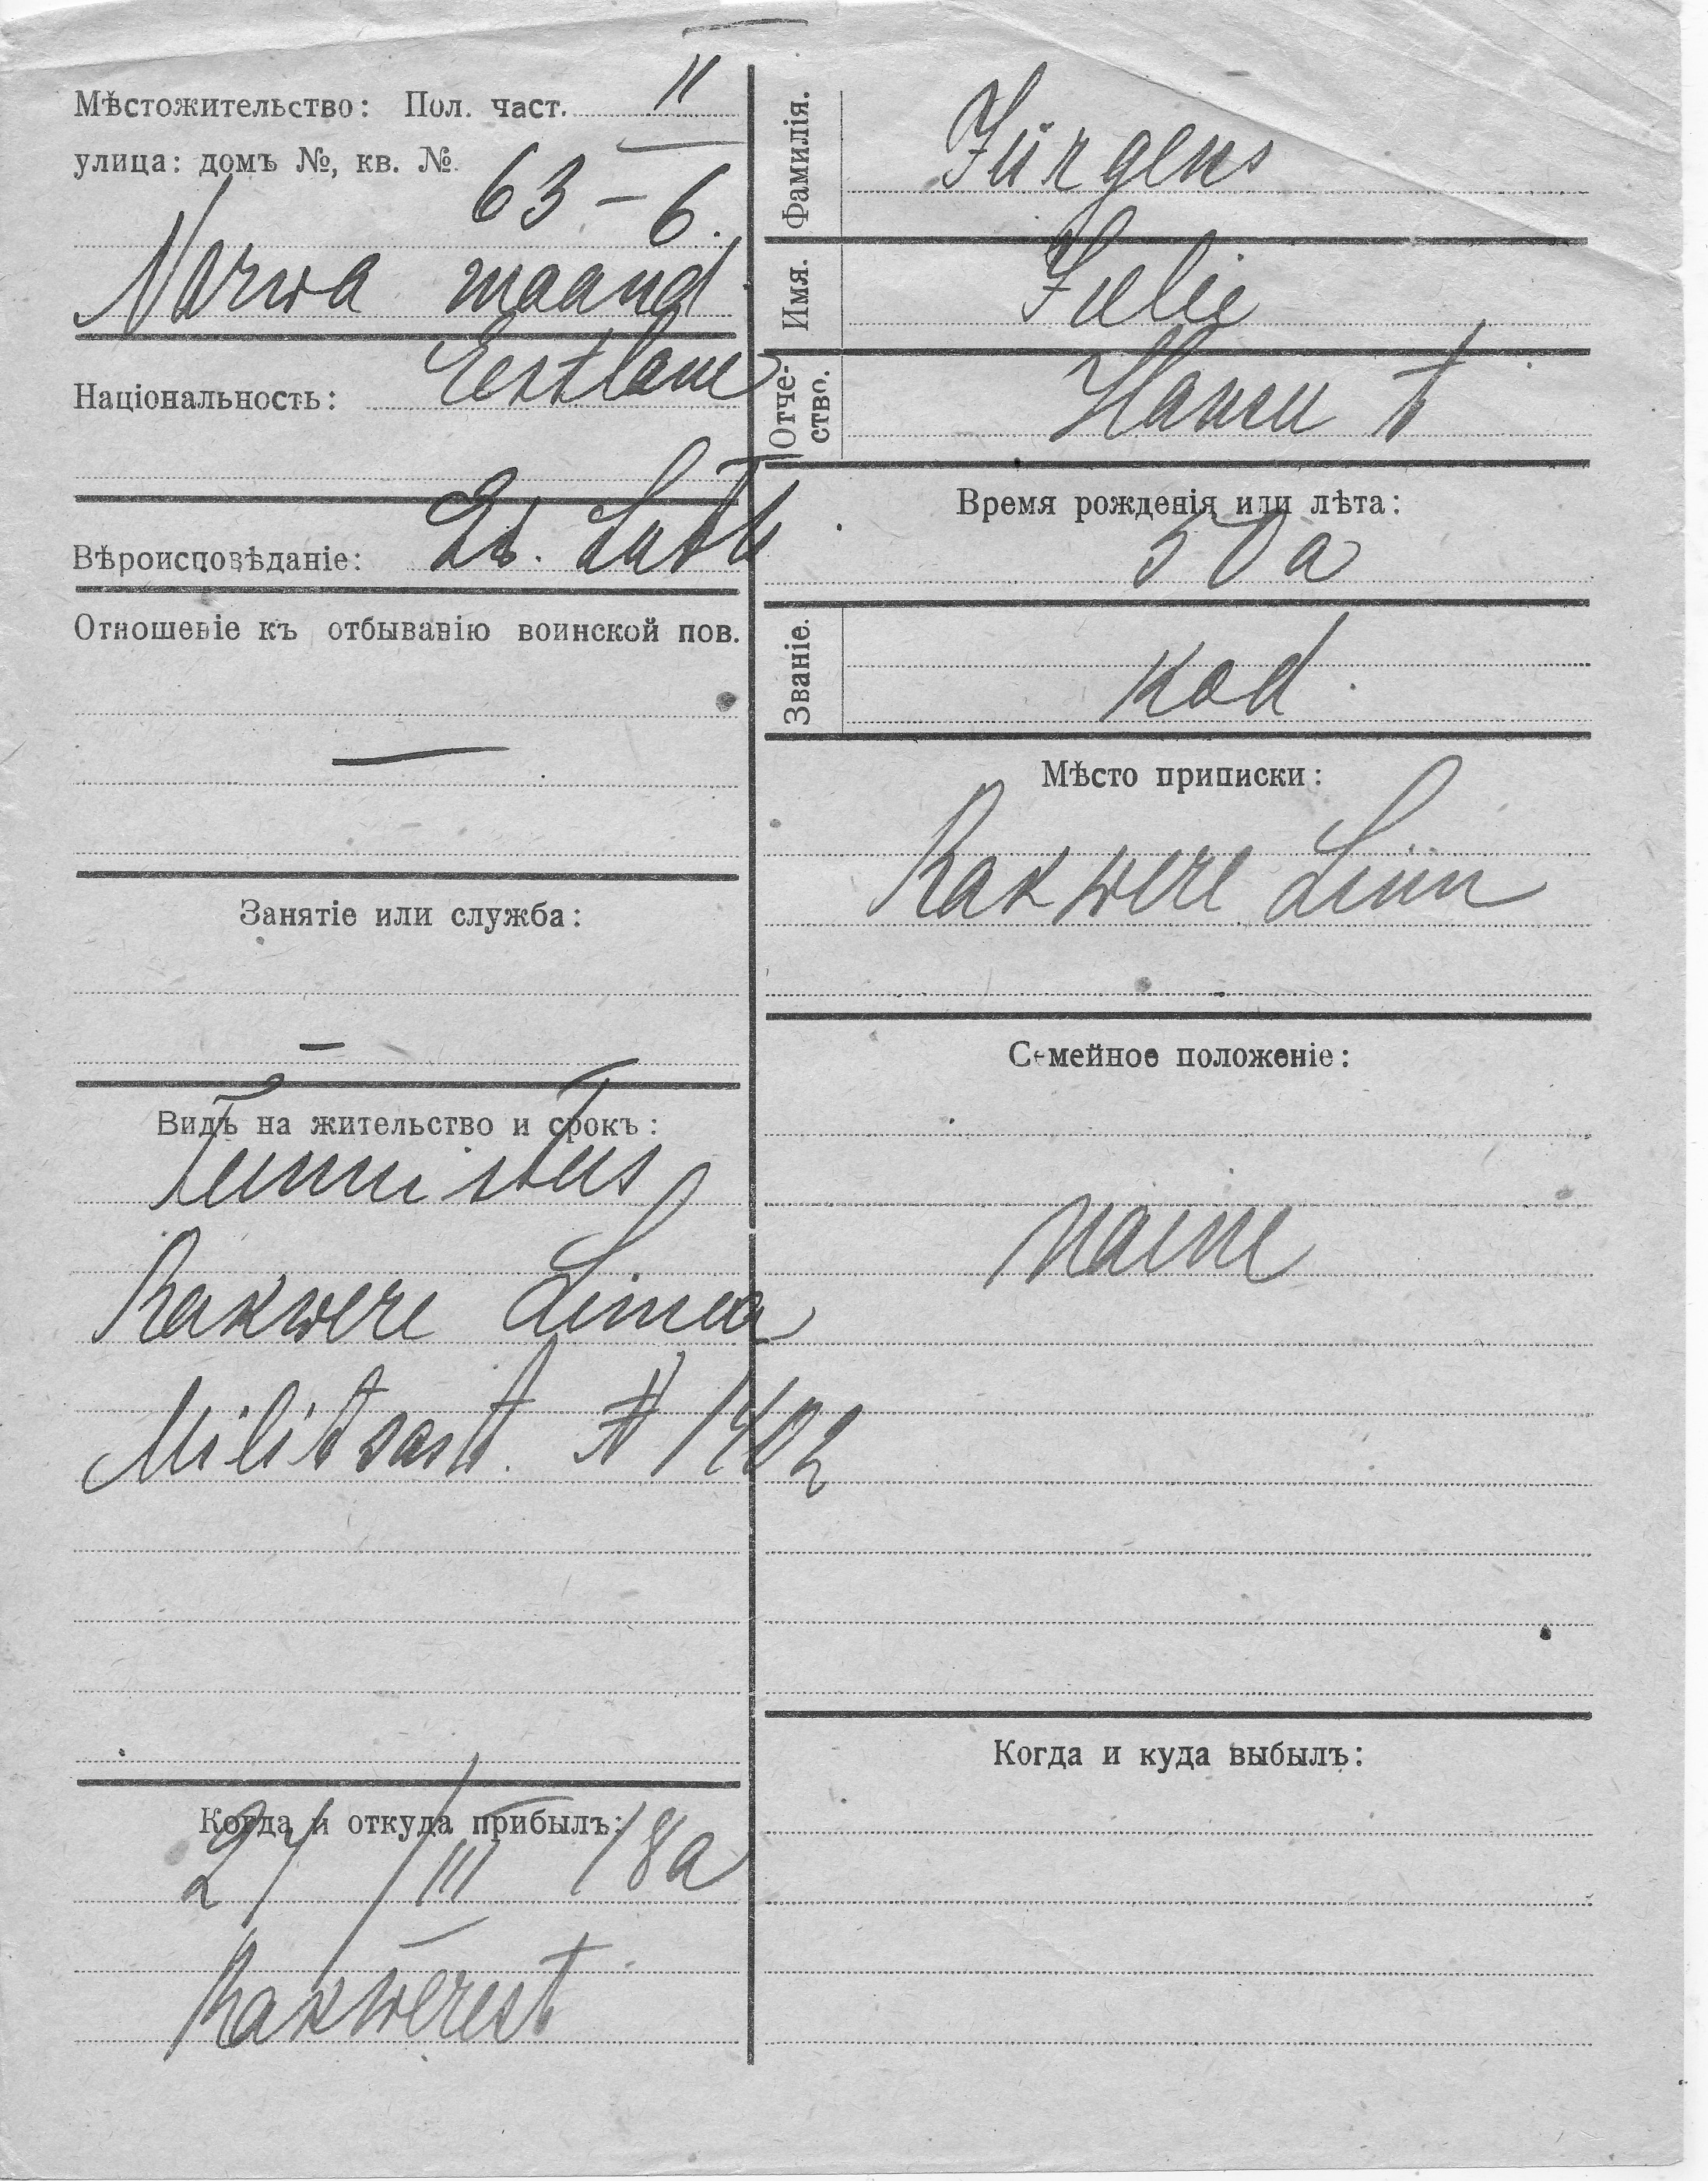 Мѣстожительство: Пол. част. II
улица: домъ №, кв. №
63-6.
Narwa maand.
Національность: Eestlane
Вѣроисповѣданіе: Ev. Luth
Отношеніе къ отбыванію воинской пов.
—
Занятіе или служба:
—
Видъ на жительство и срокъ:
tunnistus
Rakwere Linna
Militsast. № 1402
Когда и откуда прибылъ:
27/III 18a
Rakwerest
Фамилія. Jürgens
Имя. Julie
Отче-
ство. Hansu t
Время рожденія или лѣта:
50 a
Званіе. kod.
Мѣсто приписки:
Rakwere Linn
Семейное положеніе:
naine
Когда и куда выбылъ: